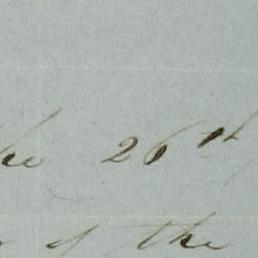 the 26th
of the